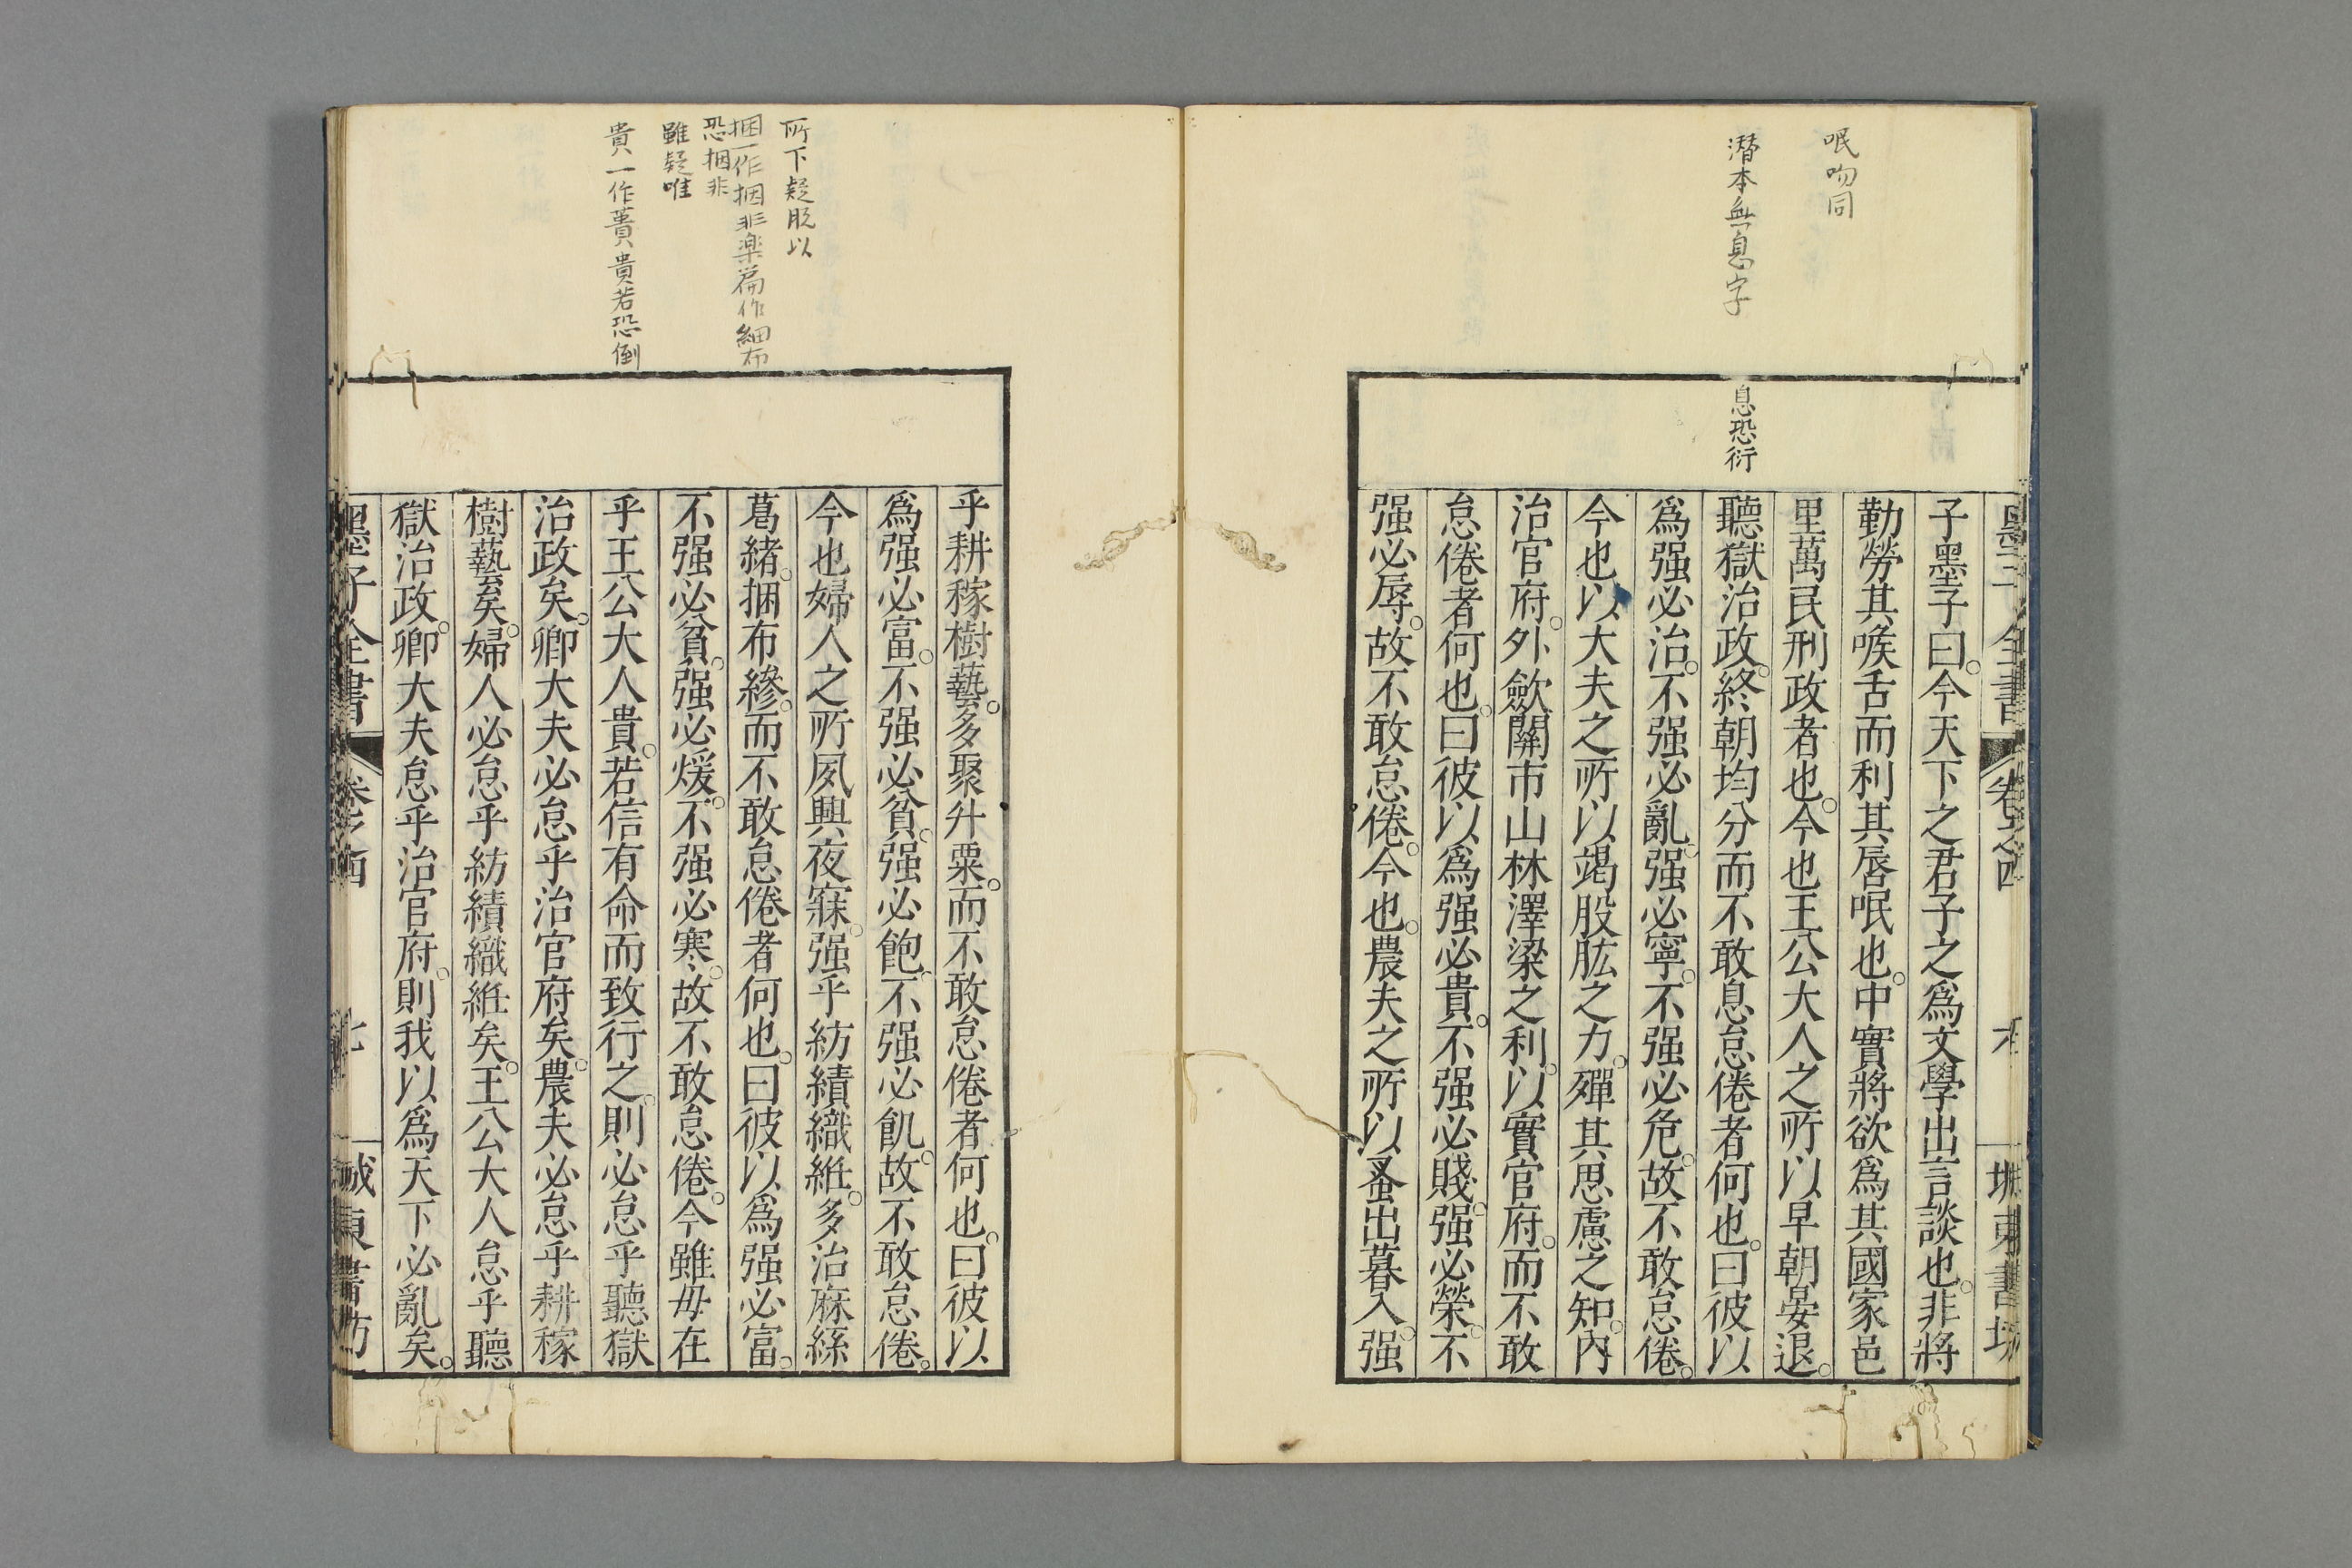 眠吻同
潛本無息字
息恐衍
子墨子曰。今天下之君子之爲文學出言談也。非將
勤勞其喉舌而利其唇眠也。中實將欲爲其國家邑
里萬民刑政者也。今也王公大人之所以早朝晏退。
聽獄治政。終朝均分而不敢息怠倦者何也。曰彼以
爲强必治。不强必亂。强必寧。不强必危。故不敢怠倦。
今也以大夫之所以竭股肱之力。殫其思慮之知。內
治官府。外歛關市山林澤梁之利。以實官府。而不敢
怠倦者何也。曰彼以爲强必貴。不强必賤。强必榮。不
强必辱。故不敢怠倦。今也。農夫之所以蚤出暮入。强
所下疑脫以
捆一作捆非楽篇作細布
恐捆非
雖疑唯
貴一作蕢貴若恐倒
乎耕稼樹藝。多聚升粟。而不敢怠倦者何也。曰彼以
爲强必富。不强必貧。强必飽。不强必飢。故不敢怠倦。
今也婦人之所夙興夜寐。强乎紡績織絍。多治麻絲
葛緒。捆布縿。而不敢怠倦者何也。曰彼以爲强必富。
不强必貧。强必煖。不强必寒。故不敢怠倦。今雖毋在
乎王公大人貴。若信有命而致行之。則必怠乎聽獄
治政矣。卿大夫必怠乎治官府矣。農夫必怠乎耕稼
樹藝矣。婦人必怠乎紡績織絍矣。王公大人怠乎聽
獄治政。卿大夫怠乎治官府。則我以爲天下必亂矣。
墨子全書 卷之四 七